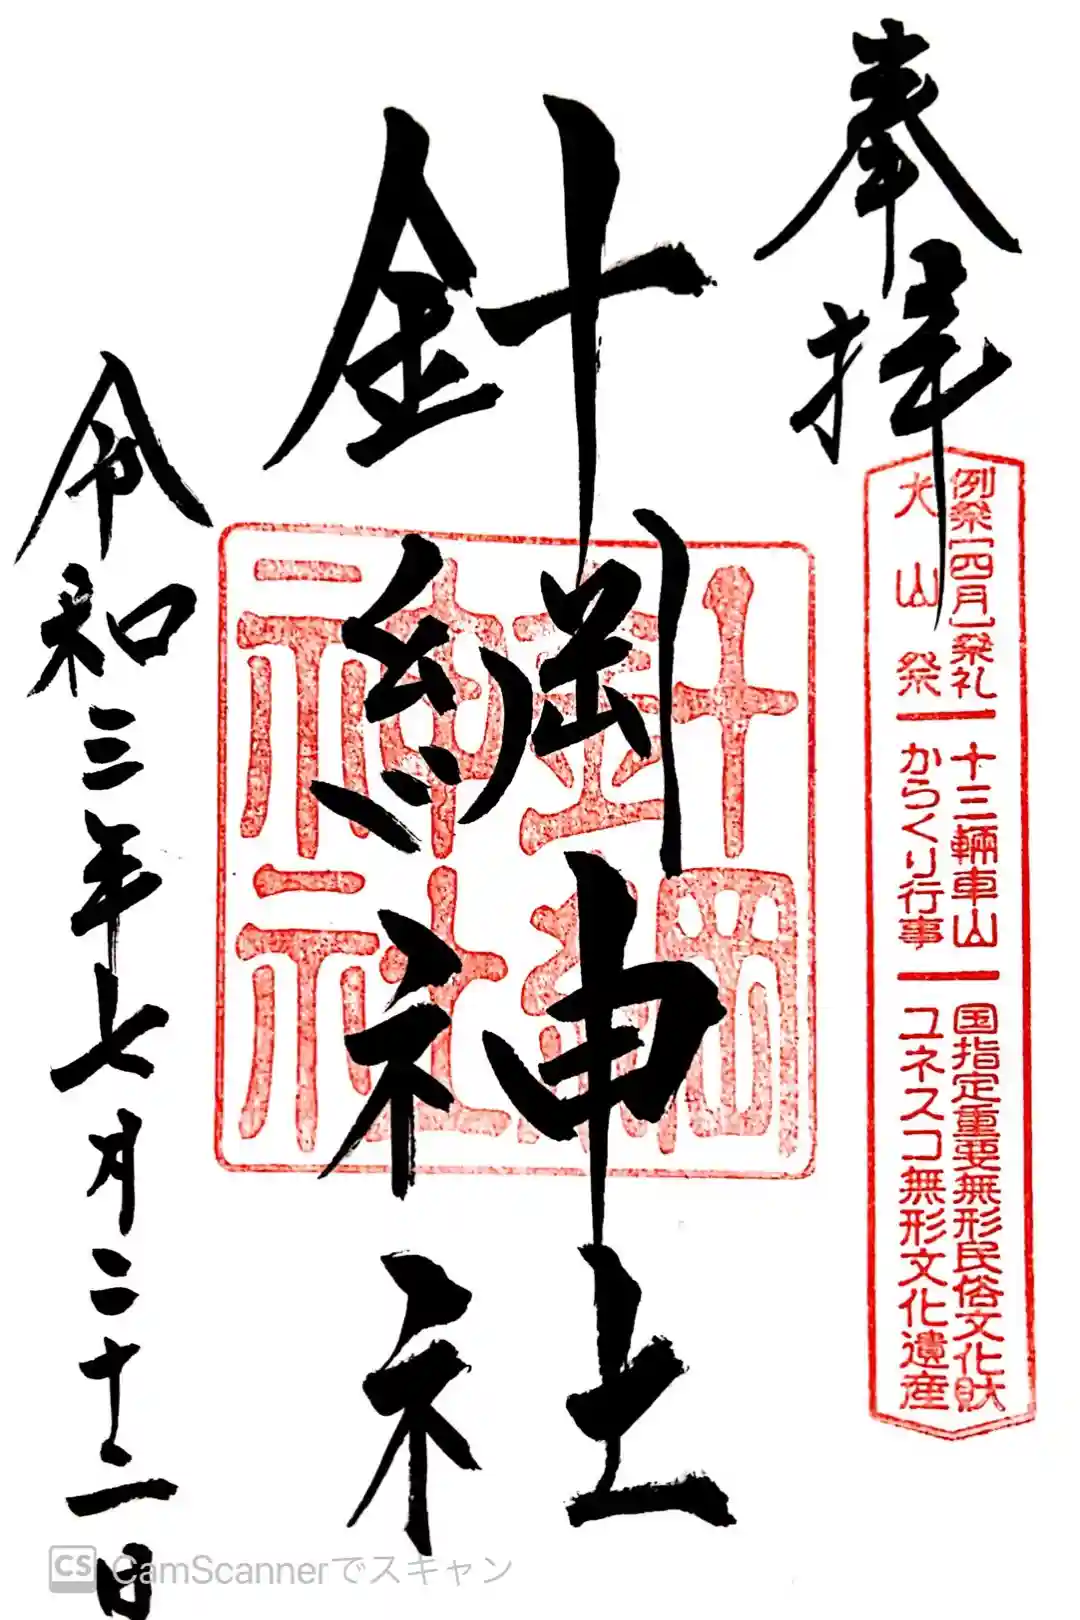 奉拝
例祭[四月]祭礼 十三輛車山 国指定重要無形民俗文化財
犬山祭 からくり行事 ユネスコ無形文化遺産
針綱神社
針綱神社
令和三年七月二十二日
CS CamScannerでスキャン